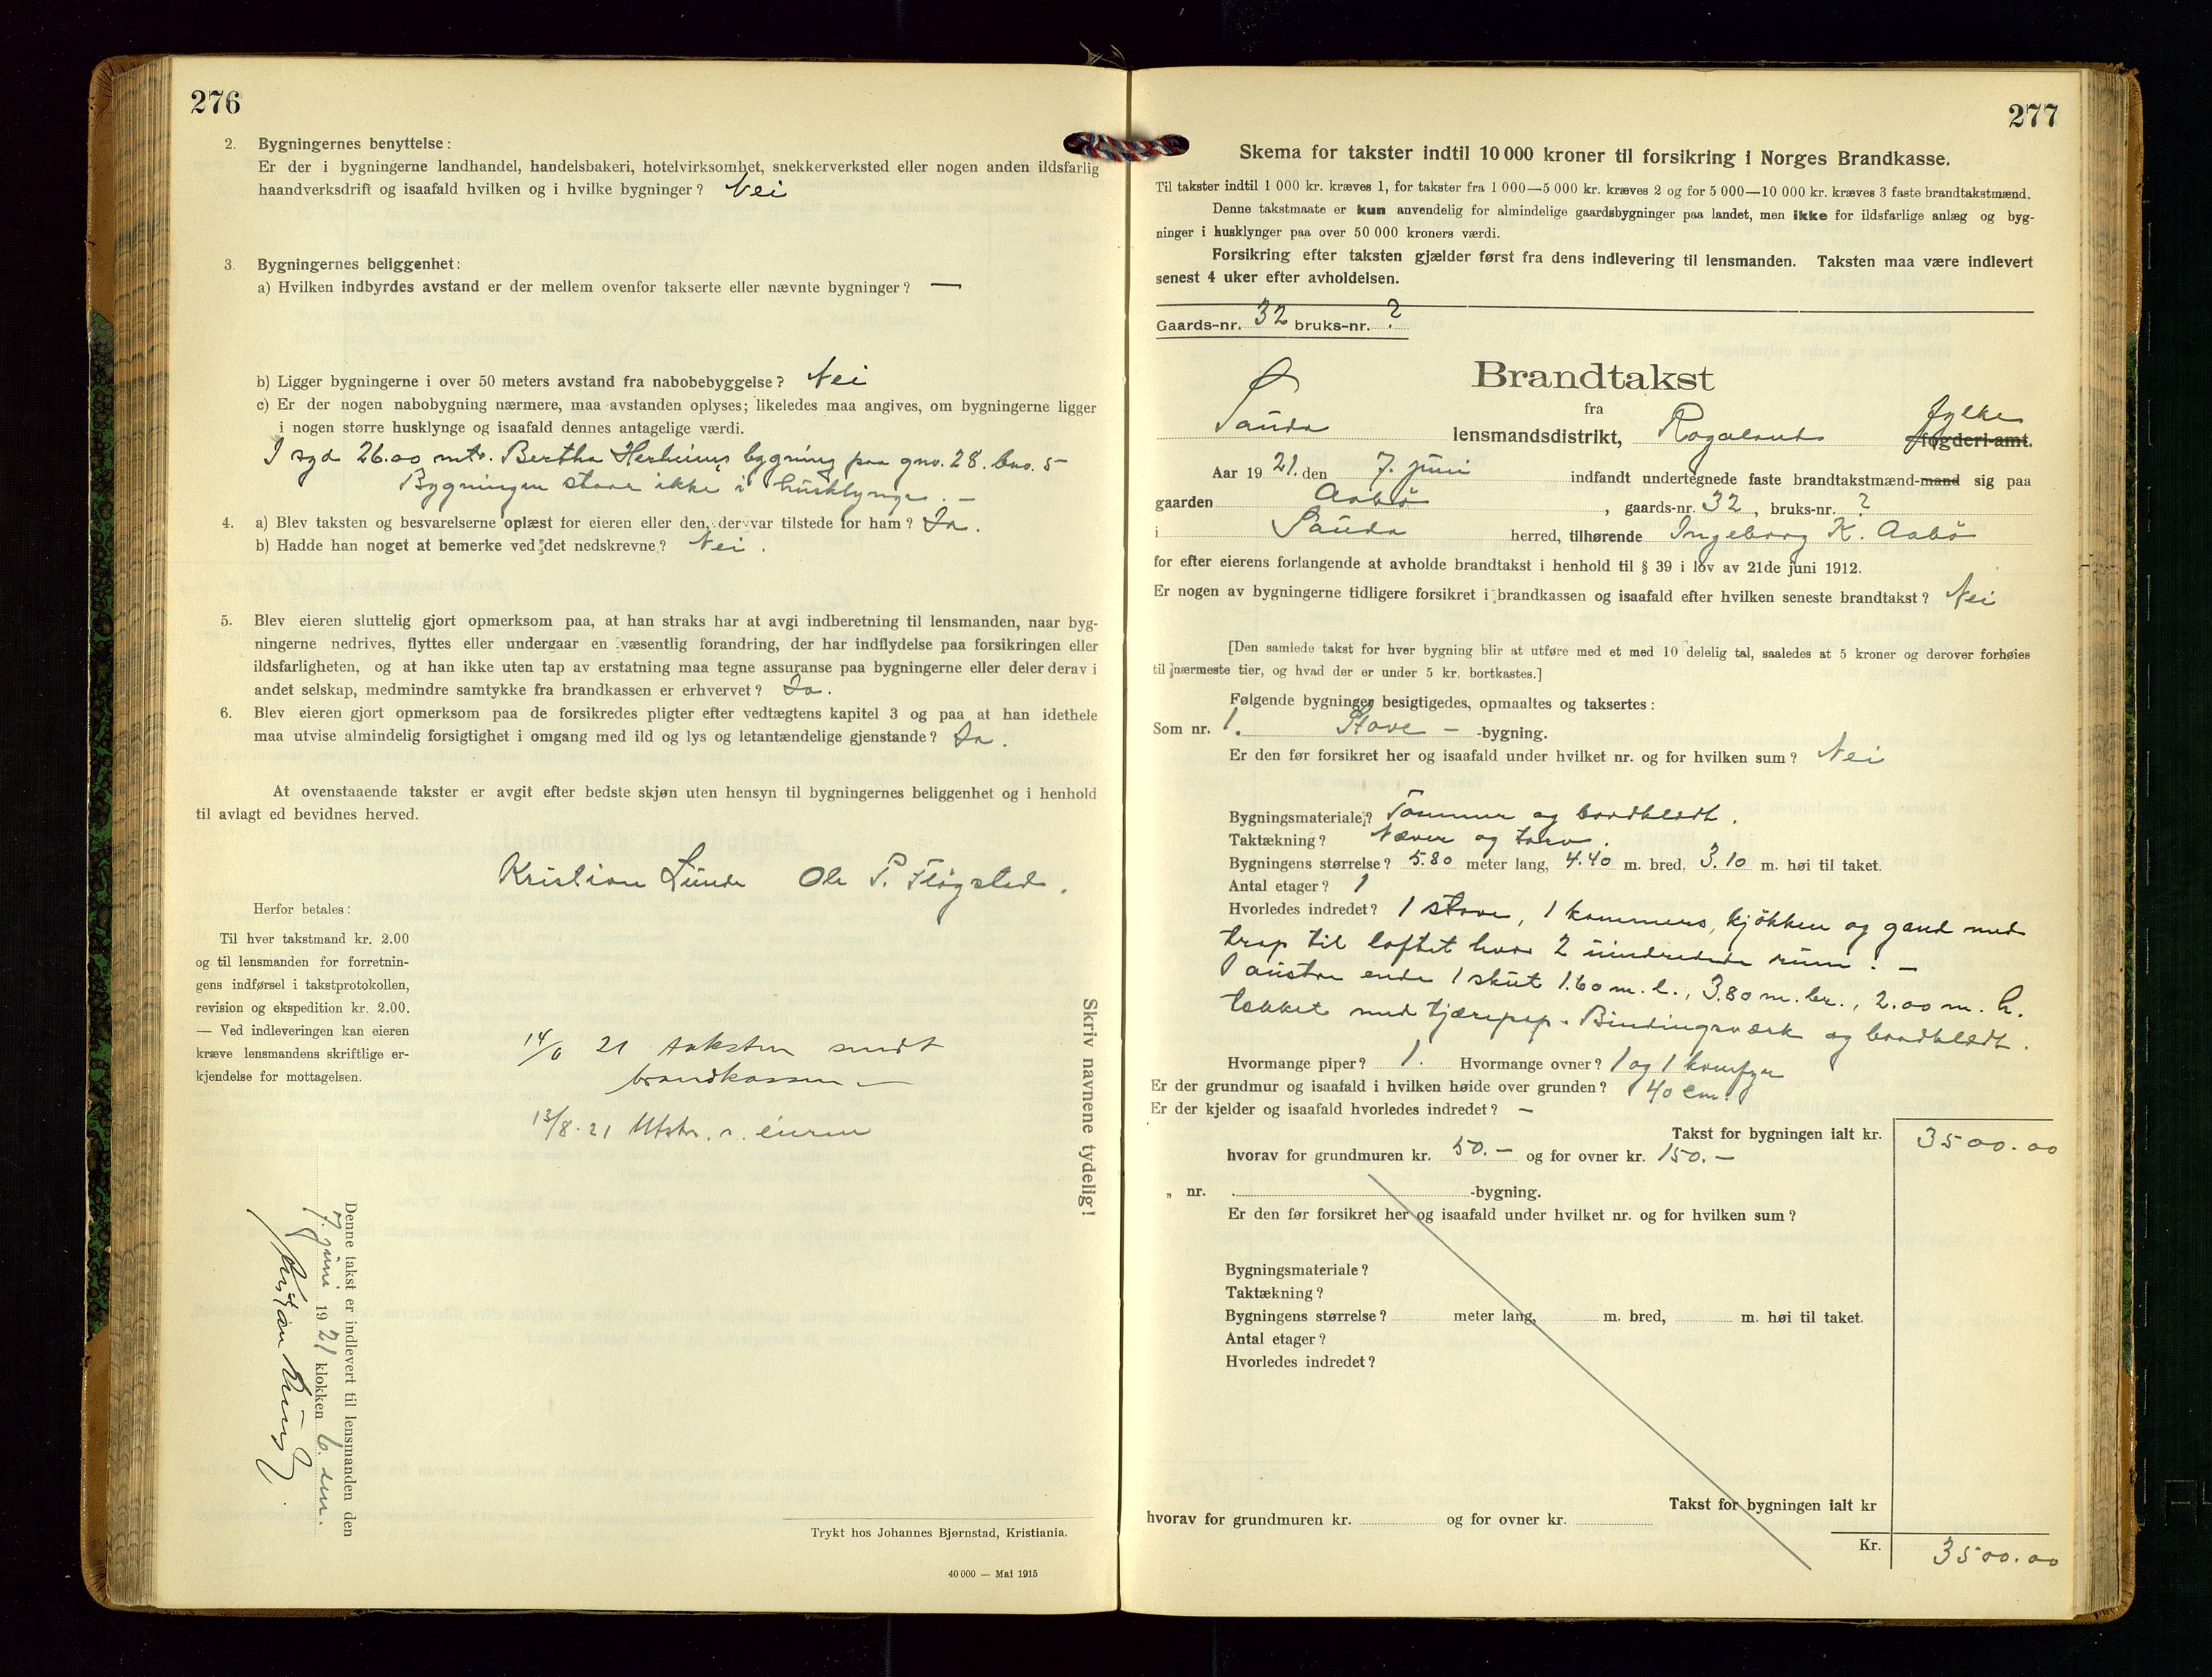 276
2. Bygningernes benyttelse:
Er der i bygningerne landhandel, handelsbakeri, hotelvirksomhet, snekkerverksted eller nogen anden ildsfarlig
haandverksdrift og isaafald hvilken og i hvilke bygninger? Nei
3. Bygningernes beliggenhet:
a) Hvilken indbyrdes avstand er der mellem ovenfor takserte eller nævnte bygninger? —
b) Ligger bygningerne i over 50 meters avstand fra nabobebyggelse? Nei
c) Er der nogen nabobygning nærmere, maa avstanden oplyses; likeledes maa angives, om bygningerne ligger
i nogen større husklynge og isaafald dennes antagelige værdi.
I syd 26.00 mtr. Bertha Herheims bygning paa gno. 28. bno. 5 –
Bygningen staar ikke i husklynge. –
4. a) Blev taksten og besvarelserne oplæst for eieren eller den, der var tilstede for ham? Ja.
b) Hadde han noget at bemerke ved det nedskrevne? Nei.
5. Blev eieren sluttelig gjort opmerksom paa, at han straks har at avgi indberetning til lensmanden, naar byg-
ningerne nedrives, flyttes eller undergaar en væsentlig forandring, der har indflydelse paa forsikringen eller
ildsfarligheten, og at han ikke uten tap av erstatning maa tegne assuranse paa bygningerne eller deler derav i
andet selskap, medmindre samtykke fra brandkassen er erhvervet? Ja.
6. Blev eieren gjort opmerksom paa de forsikredes pligter efter vedtægtens kapitel 3 og paa at han idethele
maa utvise almindelig forsigtighet i omgang med ild og lys og letantændelige gjenstande? Ja.
At ovenstaaende takster er avgit efter bedste skjøn uten hensyn til bygningernes beliggenhet og i henhold
til avlagt ed bevidnes herved.
Kristian Lunde Ole P. Fløgstad.
Herfor betales:
Til hver takstmand kr. 2.00
og til lensmanden for forretnin-
gens indførsel i takstprotokollen,
revision og ekspedition kr. 2.00.
— Ved indleveringen kan eieren
kræve lensmandens skriftlige er-
kjendelse for mottagelsen.
14/6 21 taksten sendt
brandkassen —
13/8-21 Utstr. s. eieren
Skriv navnene tydelig!
Denne takst er indlevert til lensmanden den
7. juni 1921 klokken 6. em.
Trykt hos Johannes Bjørnstad, Kristiania.
40 000 — Mai 1915
277
Skema for takster indtil 10 000 kroner til forsikring i Norges Brandkasse.
Til takster indtil 1 000 kr. kræves 1, for takster fra 1 000—5 000 kr. kræves 2 og for 5 000—10 000 kr. kræves 3 faste brandtakstmænd.
Denne takstmaate er kun anvendelig for almindelige gaardsbygninger paa landet, men ikke for ildsfarlige anlæg og byg-
ninger i husklynger paa over 50 000 kroners værdi.
Forsikring efter taksten gjælder først fra dens indlevering til lensmanden. Taksten maa være indlevert
senest 4 uker efter avholdelsen.
Gaards-nr. 32 bruks-nr. ?
Brandtakst
fra
Sauda lensmandsdistrikt, Rogalands fogderi-amt. fylke
Aar 1921. den 7. juni indfandt undertegnede faste brandtakstmænd-mand sig paa
gaarden Aabø, gaards-nr. 32, bruks-nr. ?
i Sauda herred, tilhørende Ingeborg K. Aabø
for efter eierens forlangende at avholde brandtakst i henhold til § 39 i lov av 21de juni 1912.
Er nogen av bygningerne tidligere forsikret i brandkassen og isaafald efter hvilken seneste brandtakst? Nei
[Den samlede takst for hver bygning blir at utføre med et med 10 delelig tal, saaledes at 5 kroner og derover forhøies
til nærmeste tier, og hvad der er under 5 kr. bortkastes.]
Følgende bygninger besigtigedes, opmaaltes og taksertes:
Som nr. 1. Stove – -bygning.
Er den før forsikret her og isaafald under hvilket nr. og for hvilken sum? Nei
Bygningsmateriale? Tømmer og bordklædt.
Taktækning? Næver og torv.
Bygningens størrelse? 5.80 meter lang, 4.40 m. bred, 3.10 m. høi til taket.
Antal etager? 1
Hvorledes indredet? 1 stove, 1 kammers, kjøkken og gand med
trap til loftet hvor 2 uindredede rum. –
I austre ende 1 skut 1.60 m. l., 3.80 m. br., 2.00 m. h.
tækket med tjærepap. Bindingsværk og bordklædt.
Hvormange piper? 1. Hvormange ovner? 1 og 1 komfyr
Er der grundmur og isaafald i hvilken høide over grunden? 40 cm.
Er der kjelder og isaafald hvorledes indredet? –
Takst for bygningen ialt kr. 3500.00
hvorav for grundmuren kr. 50.– og for ovner kr. 150.–
„ nr. -bygning.
Er den før forsikret her og isaafald under hvilket nr. og for hvilken sum?
Bygningsmateriale?
Taktækning?
Bygningens størrelse? meter lang, m. bred, m. høi til taket.
Antal etager?
Hvorledes indredet?
Takst for bygningen ialt kr
hvorav for grundmuren kr. og for ovner kr.
Kr. 3500.00